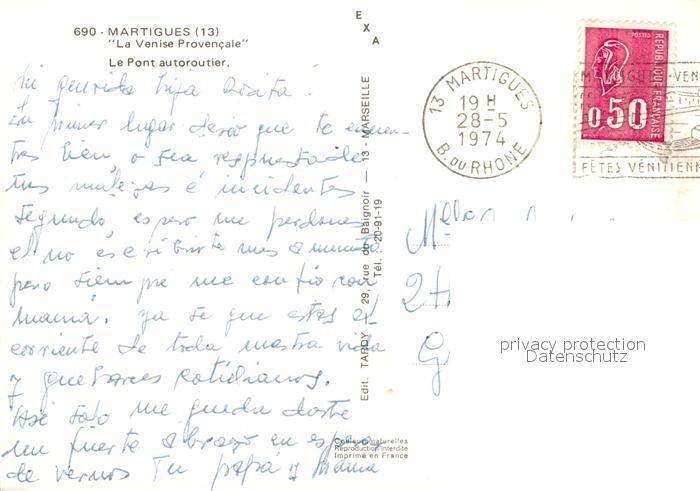 690 - MARTIGUES (13)
"La Venise Provençale"
Le Pont autoroutier.
E
X
A
Mi querida hija Rosita:
En primer lugar deseo que te encuen-
tres bien, o sea repuesta de
tus malezas é incidentes
Segundo, espero me perdones
el no escribirte mas a menudo
pero siempre me confio con
mamá. ya se que estas al
corriente de toda nuestra vida
y quehaceres cotidianos.
Asi solo me queda darte
un fuerte abrazo en espera
de vernos Tu papá y Mama
Edit. TARDY - 29, rue du Baignoir - 13 - MARSEILLE
Tél. : 20-91-19
Couleurs naturelles
Reproduction interdite
Imprimé en France
13 MARTIGUES
19 H
28-5
1974
B. DU RHONE
POSTES
REPUBLIQUE FRANÇAISE
0,50
FÊTES VÉNITIENN
Mell
2
G
privacy protection
Datenschutz